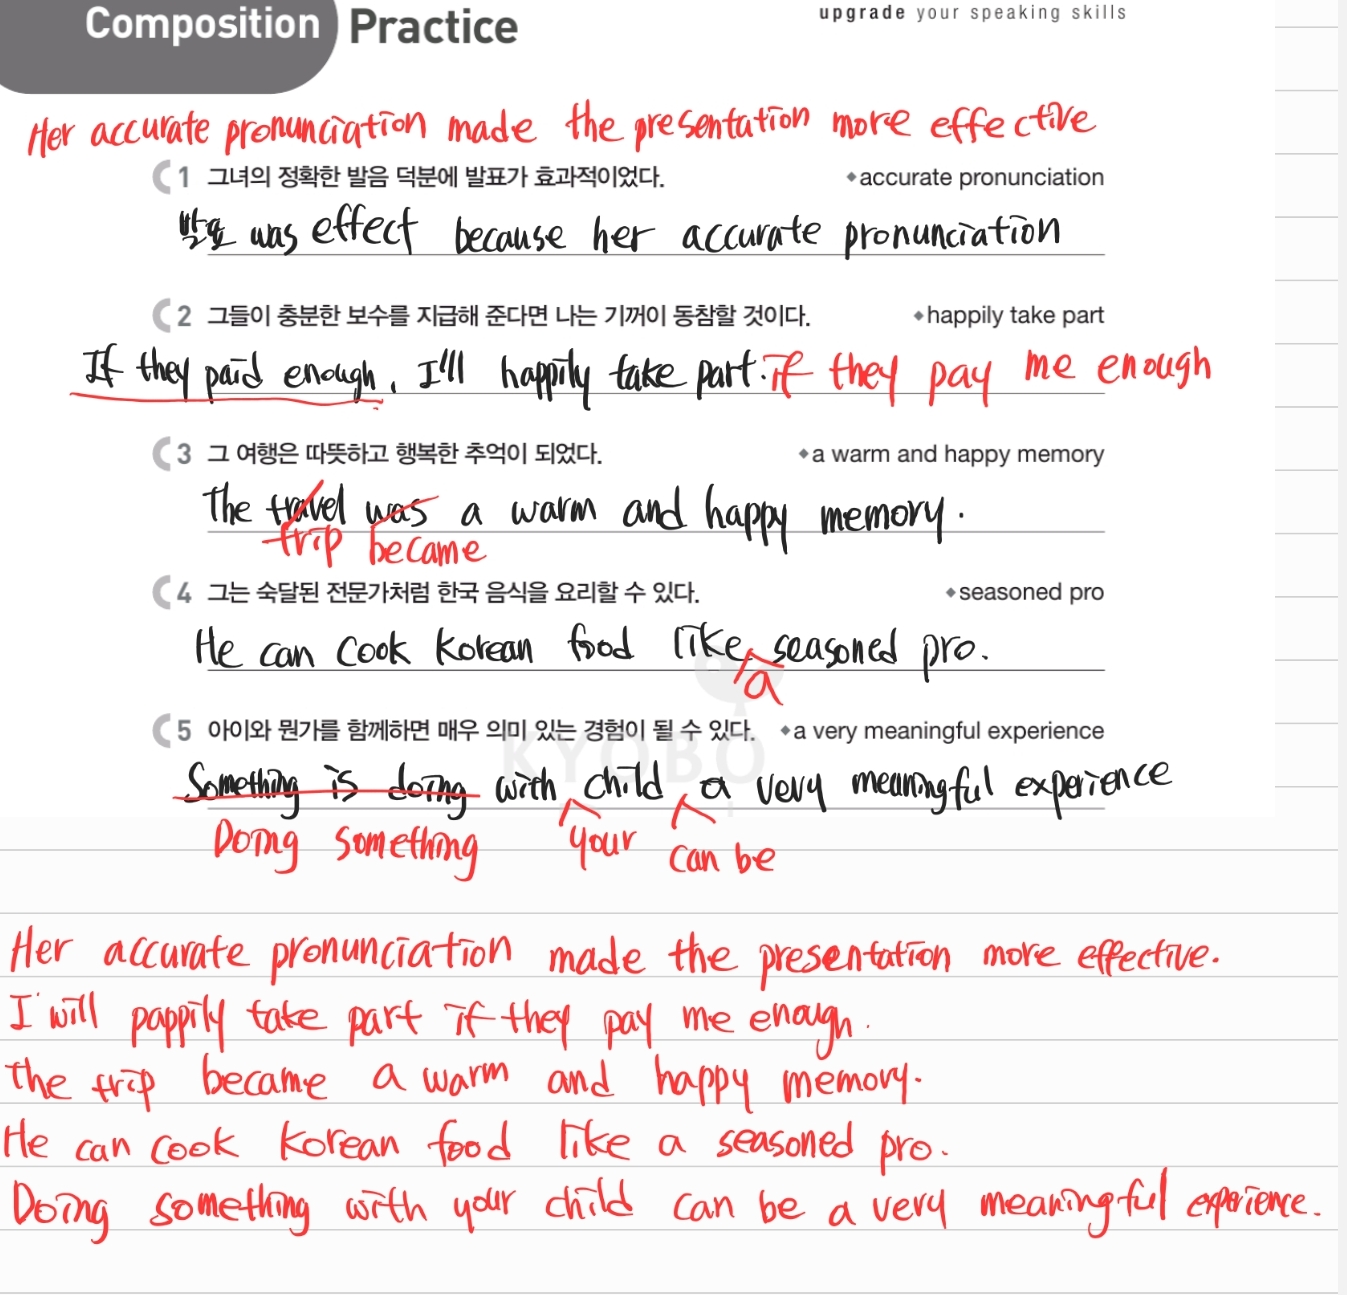 Composition Practice
upgrade your speaking skills
Her accurate pronunciation made the presentation more effective
1 그녀의 정확한 발음 덕분에 발표가 효과적이었다. ◆accurate pronunciation
발표 was effect because her accurate pronunciation
2 그들이 충분한 보수를 지급해 준다면 나는 기꺼이 동참할 것이다. ◆happily take part
If they paid enough, I'll happily take part. if they pay me enough
3 그 여행은 따뜻하고 행복한 추억이 되었다. ◆a warm and happy memory
The travel was a warm and happy memory.
trip became
4 그는 숙달된 전문가처럼 한국 음식을 요리할 수 있다. ◆seasoned pro
He can cook Korean food like seasoned pro.
a
5 아이와 뭔가를 함께하면 매우 의미 있는 경험이 될 수 있다. ◆a very meaningful experience
KYOBO
Something is doing with child a very meaningful experience
Doing something your can be
Her accurate pronunciation made the presentation more effective.
I will pappily take part if they pay me enough.
The trip became a warm and happy memory.
He can cook Korean food like a seasoned pro.
Doing something with your child can be a very meaningful experience.